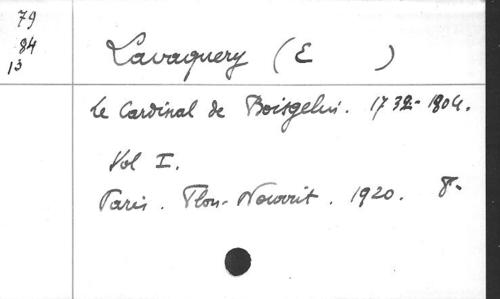 79
84
13
Lavaquery (E )
Le Cardinal de Boisgelin. 1732-1804.
Vol I.
Paris. Plon-Nourrit. 1920. 8-